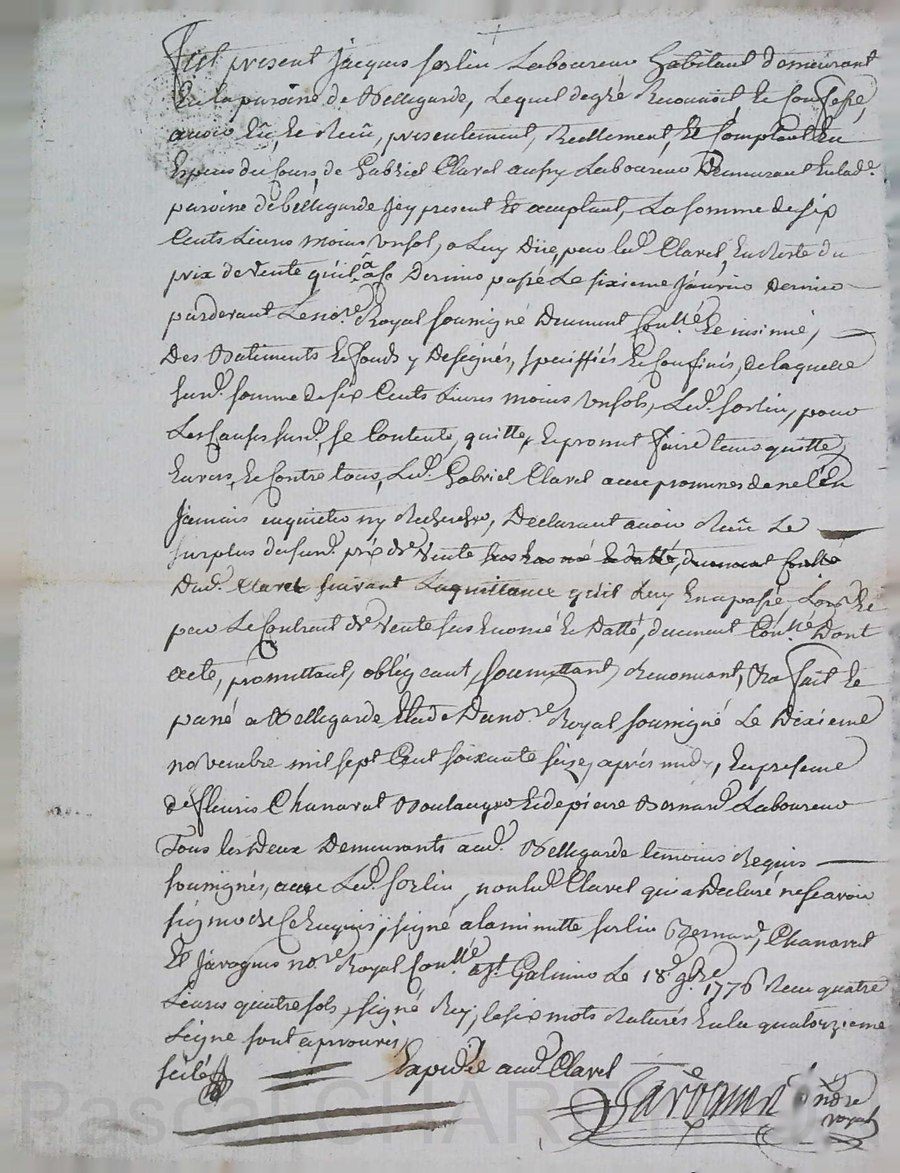 Fut présent Jacques forlin Laboureur habitant demeurant
En la paroisse de Bellegarde, Lequel de gré Reconnoit Et Confesse,
avoir Eü, Et Reçeu, présentement, Reellement, Et Comptant En
Especes du Cours, de Gabriel Clavel aussy Laboureur Demeurant En lad.e
paroisse de bellegarde Icy present Et acceptant, La somme de six
Cents Livres moins un sol, a Luy Düe, par led. Clavel, En Reste du
prix de vente qu'il a Dernier passé Le sixieme Janvier dernier
pardevant Le no.re Royal soussigné Deument Coull.é Et insinué,
Des Batiments Et fonds y Designés, speciffiés Et Confinés, de laquelle
susd. somme de six Cents Livres moins un sols, Led. forlin, pour
Les Causes susd. se Contente, quitte, Et promet faire tenir quitte
Envers, Et Contre tous, Led. Gabriel Clavel avec promesses de ne l'En
Jamais inquietter ny Rechercher, Declarant avoir Reçeu Le
surplus du susd. prix de Vente
Dud. Clavel suivant La quittance qu'il Luy En a passé, Lors Et
par Le Contrat de Vente sus Enoncé Et Datté, deument Con.llé Dont
acte, promettant, obligeant, soumettant, Renonçant, &a fait Et
passé a Bellegarde Etude Dud no.re Royal soussigné Le dixieme
novembre mil sept Cent soixante seize, après midy, En presence
de fleuris Chanavat Boulanger Et de pierre Bernard Laboureur
Tous les Deux Demeurants aud. Bellegarde temoins Requis
soussignés, avec Led. forlin, non led. Clavel qui a Declaré ne scavoir
signer de Ce Enquis, signé a la minutte forlin Bernard, Chanavat
Et Javogues no.re Royal Con.llé a St Galmier Le 18e 9bre 1776 Reçu quatre
Livres quatre sols, signé Rey, les six mots Raturés En la quatorzieme
Ligne sont approuvés
scélé Expedié aud. Clavel
Javogues nore
royal
Pascal